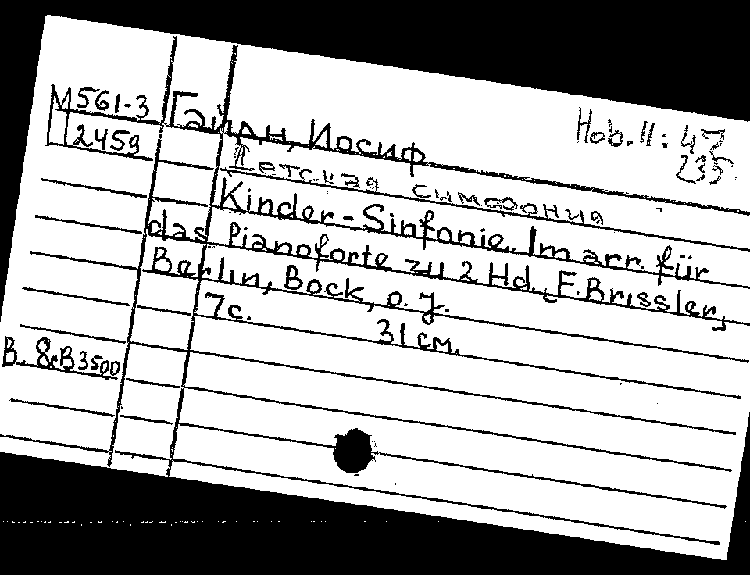 М561-3
2459
Гайдн, Иосиф
Hob. II: 47
235
Детская симфония
Kinder-Sinfonie. Im arr. für
das Pianoforte zu 2 Hd., F. Brissler,
Berlin, Bock, o. J.
7с. 31 см.
B. & B 3500